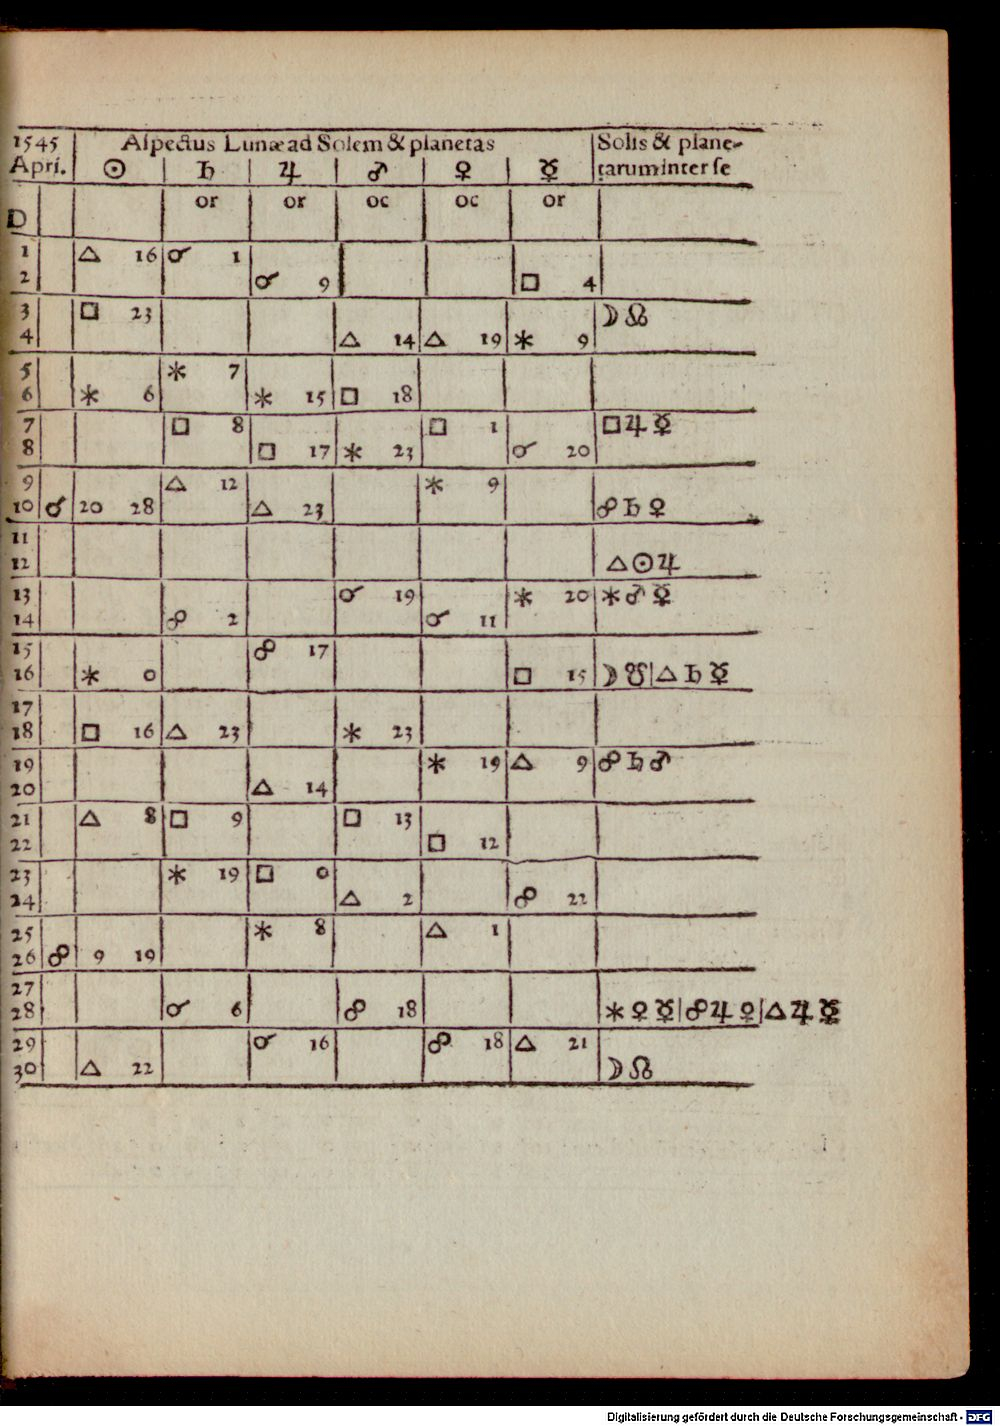 1545 Aspectus Lunæ ad Solem & planetas Solis & plane-
Apri. ☉ ♄ ♃ ♂ ♀ ☿ tarum inter se
D or or oc oc or
1 △ 16 ☌ 1
2 ☌ 9 □ 4
3 □ 23 ☽ ☊
4 △ 14 △ 19 ✶ 9
5 ✶ 7
6 ✶ 6 ✶ 15 □ 18
7 □ 8 □ 1 □ ♃ ☿
8 □ 17 ✶ 23 ☌ 20
9 △ 12 ✶ 9
10 ☌ 20 28 △ 23 ☍ ♄ ♀
11
12 △ ☉ ♃
13 ☌ 19 ✶ 20 ✶ ♂ ☿
14 ☍ 2 ☌ 11
15 ☍ 17
16 ✶ 0 □ 15 ☽ ☋ | △ ♄ ☿
17
18 □ 16 △ 23 ✶ 23
19 ✶ 19 △ 9 ☍ ♄ ♂
20 △ 14
21 △ 8 □ 9 □ 13
22 □ 12
23 ✶ 19 □ 0
24 △ 2 ☍ 22
25 ✶ 8 △ 1
26 ☍ 9 19
27
28 ☌ 6 ☍ 18 ✶ ♀ ☿ | ☍ ♃ ♀ | △ ♃ ☿
29 ☌ 16 ☍ 18 △ 21
30 △ 22 ☽ ☊
Digitalisierung gefördert durch die Deutsche Forschungsgemeinschaft - DFG